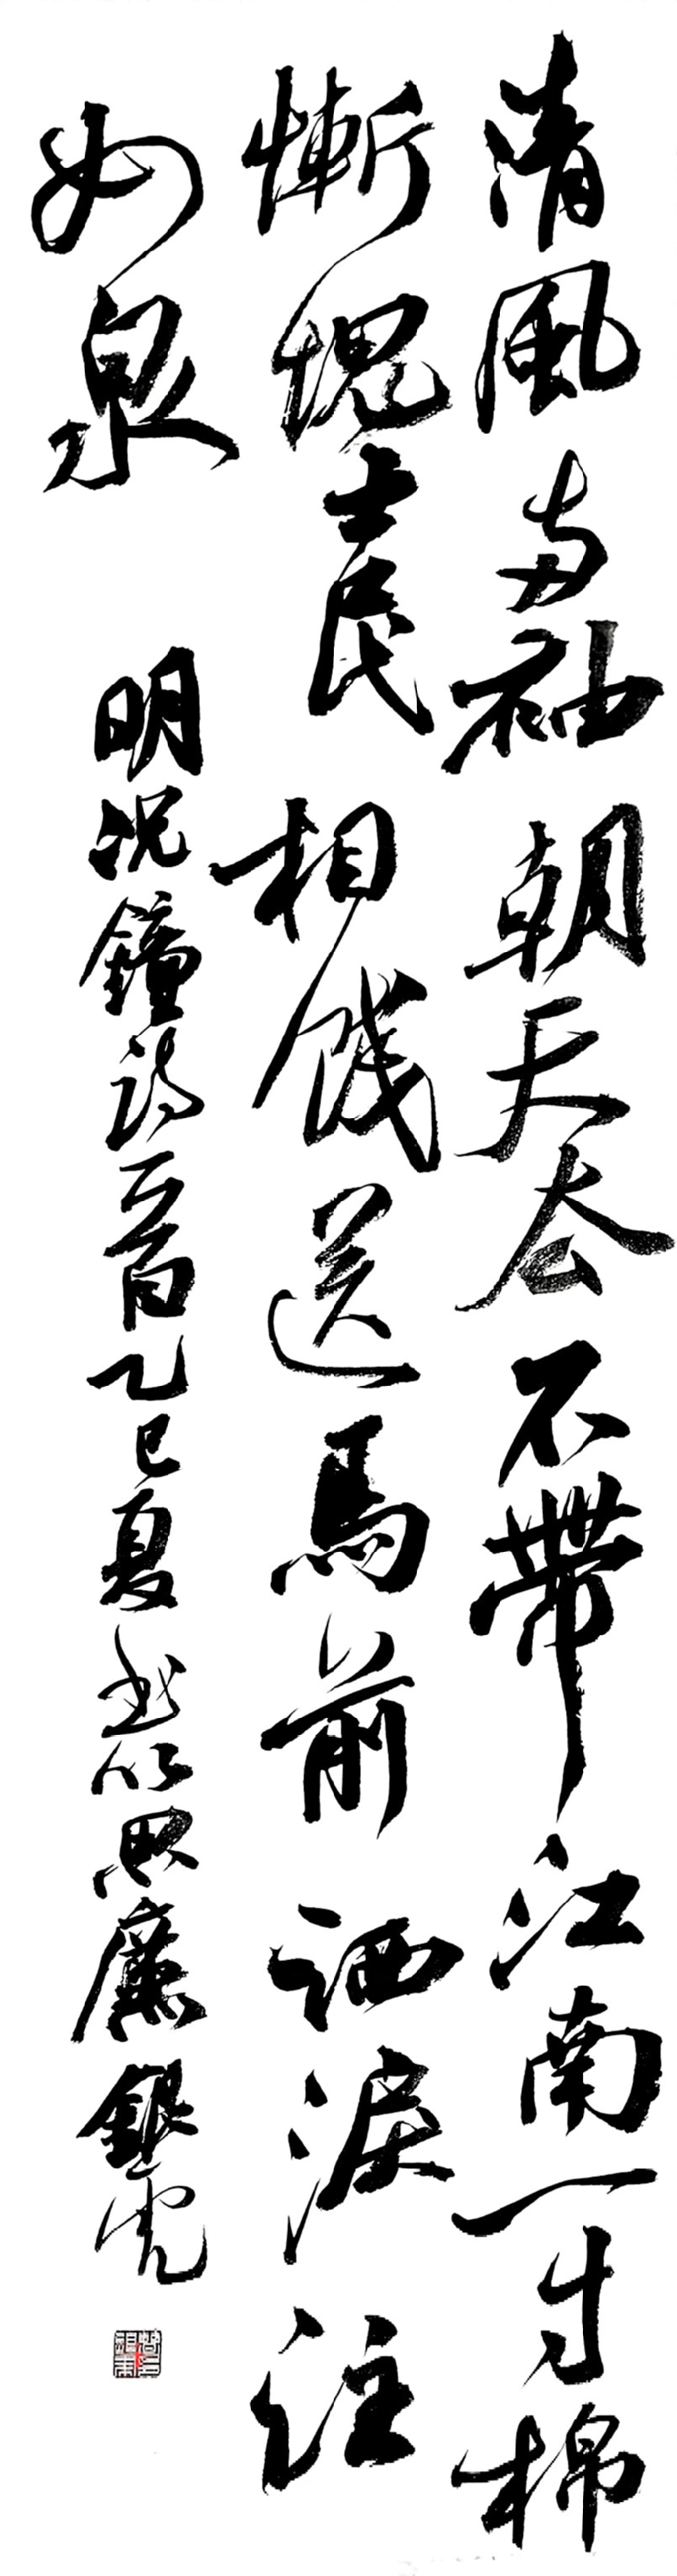 清風兩袖朝天去不帶江南一寸棉
慚愧士民相餞送馬前洒淚注
如泉
明況鐘詩一首乙巳夏書以思廉銀虎